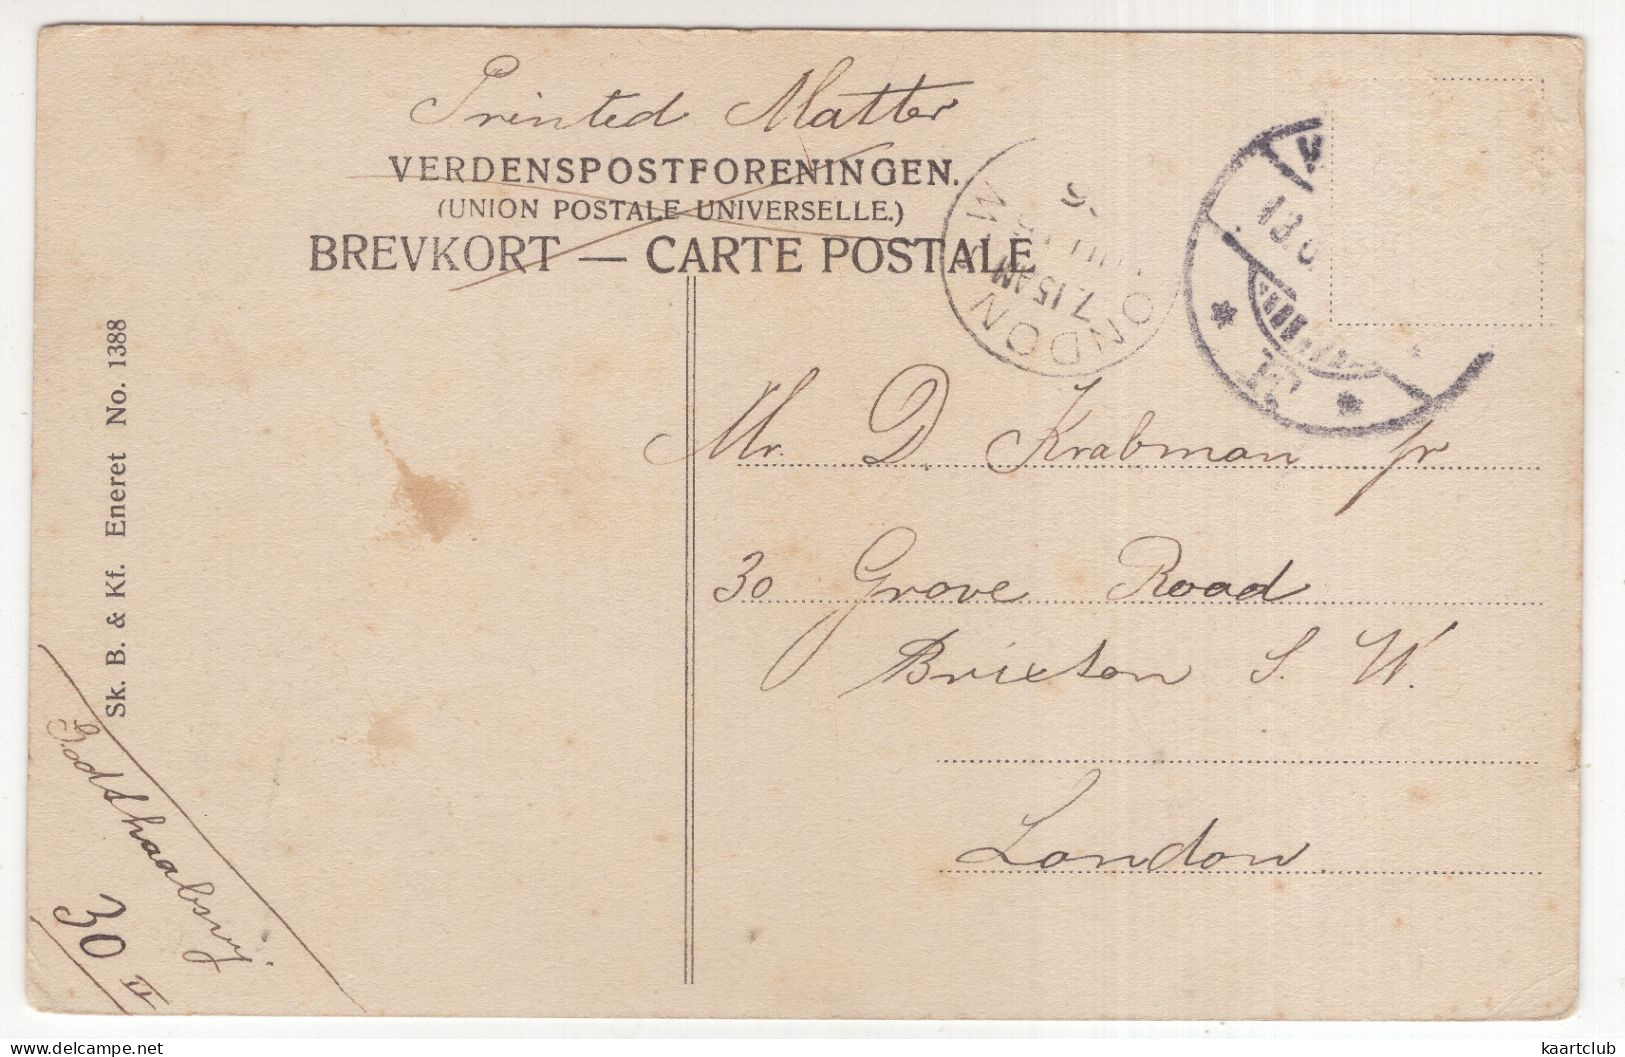 Printed Matter
VERDENSPOSTFORENINGEN.
(UNION POSTALE UNIVERSELLE.)
BREVKORT — CARTE POSTALE
LONDON W
7.15 AM
Mr. D. Krabman jr
30 Grove Road
Brixton S. W.
London
Sk. B. & Kf. Eneret No. 1388
Godthaabsvej.
30 II
kaartclub